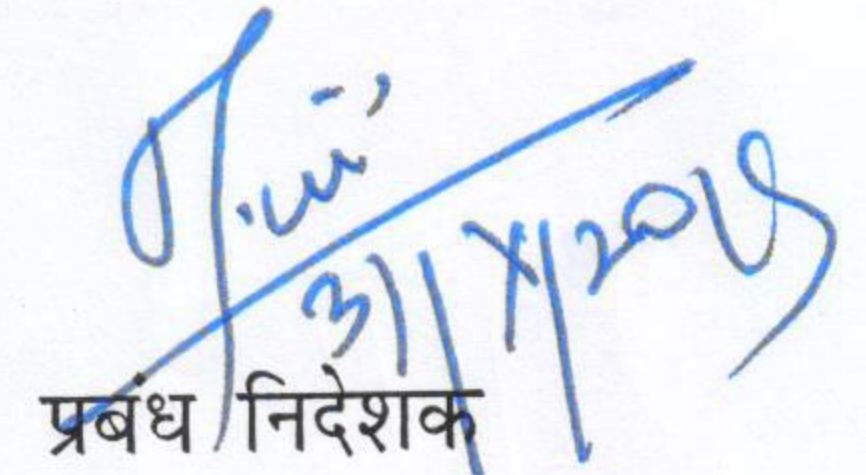 31/X/2019
प्रबंध निदेशक